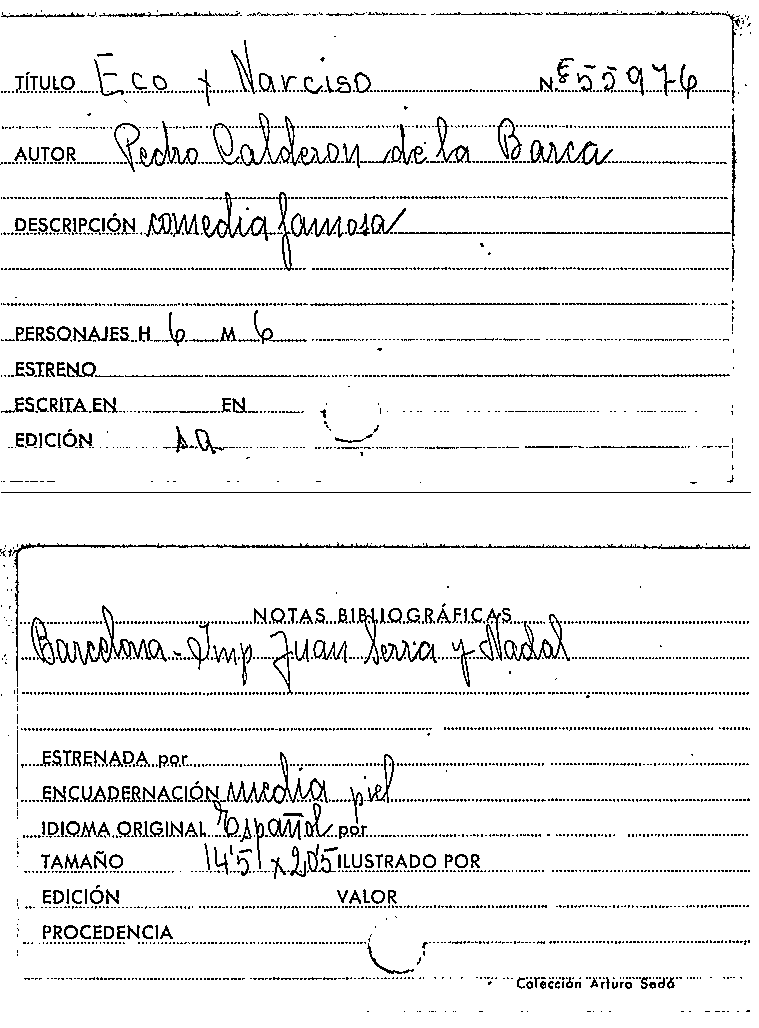 TÍTULO Eco y Narciso N.º 55976
AUTOR Pedro Calderon de la Barca
DESCRIPCIÓN comedia famosa
PERSONAJES H 6 M 6
ESTRENO
ESCRITA EN EN
EDICIÓN s.a
NOTAS BIBLIOGRÁFICAS
Barcelona - Imp Juan Serra y Nadal
ESTRENADA por
ENCUADERNACIÓN media piel
IDIOMA ORIGINAL Español por
TAMAÑO 14'5 x 20'5 ILUSTRADO POR
EDICIÓN VALOR
PROCEDENCIA
Colección Arturo Sedó